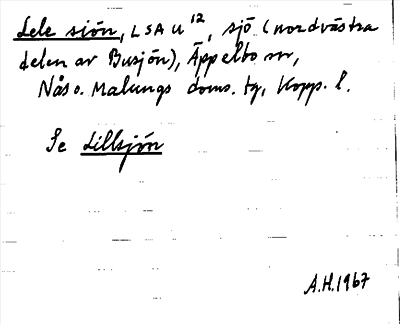 Lele sjön, LSAU¹², sjö (nordvästra
delen av Busjön), Äppelbo sn,
Nås o. Malungs doms. tg, Kopp. l.
Se Lillsjön
A.H. 1967